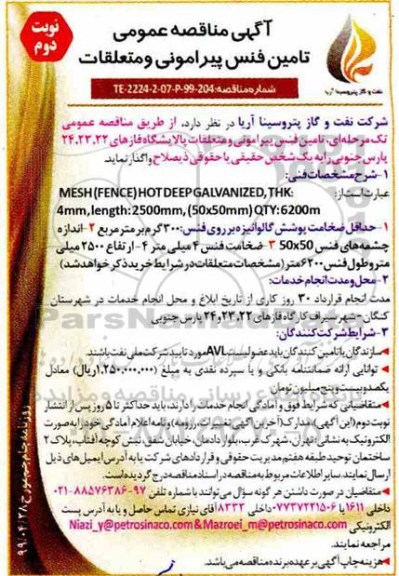 آگهی مناقصه عمومی
نوبت
دوم
تامین فنس پیرامونی و متعلقات
شماره مناقصه: TE-2224-2-07-P-99-204
نفت و گاز پتروسینا آریا
شرکت نفت و گاز پتروسینا آریا در نظر دارد، از طریق مناقصه عمومی
تک مرحله‌ای، تامین فنس پیرامونی و متعلقات پالایشگاه فازهای ۲۲،۲۳،۲۴
پارس جنوبی را به یک شخص حقیقی یا حقوقی ذیصلاح واگذار نماید.
۱-شرح مشخصات فنی:
عبارت است از: MESH (FENCE) HOT DEEP GALVANIZED, THK:
4mm, length: 2500mm, (50x50mm) QTY: 6200m
۱- حداقل ضخامت پوشش گالوانیزه بر روی فنس: ۳۰۰ گرم بر متر مربع ۲- اندازه
چشمه های فنس 50x50 ۳- ضخامت فنس ۴ میلی متر ۴- ارتفاع ۲۵۰۰ میلی
متر و طول فنس ۶۲۰۰ متر (مشخصات متعلقات در شرایط خرید ذکر خواهد شد)
۲-محل و مدت انجام خدمات:
مدت انجام قرارداد ۳۰ روز کاری از تاریخ ابلاغ و محل انجام خدمات در شهرستان
کنگان - شهر سیراف کارگاه فازهای ۲۲،۲۳،۲۴ پارس جنوبی
۳-شرایط شرکت کنندگان:
سازندگان یا تامین کنندگان باید عضو لیست AVL مورد تایید شرکت ملی نفت باشند.
توانایی ارائه ضمانتنامه بانکی و یا سپرده نقدی به مبلغ (۱،۲۵۰،۰۰۰،۰۰۰ ریال) معادل
یکصد و بیست و پنج میلیون تومان
متقاضیانی که شرایط فوق و آمادگی انجام خدمات را دارند، باید حداکثر تا ۵ روز پس از انتشار
نوبت دوم (این آگهی)، مدارک (آخرین آگهی ثبت، رزومه) و نامه اعلام آمادگی خود را به صورت
الکترونیک به نشانی تهران، شهرک غرب، بلوار دادمان، خیابان فخار مقدم، نبش کوچه آفتاب، پلاک ۲
ساختمان توحید طبقه هفتم مدیریت حقوقی و قراردادهای شرکت یا به آدرس ایمیل های ذیل
ارسال نمایند. سایر اطلاعات مربوط به مناقصه در اسناد مناقصه درج گردیده است.
متقاضیان در صورت داشتن هر گونه سؤال می توانند با شماره تلفن ۹۷-۸۸۵۷۶۳۸۶-۰۲۱
داخلی ۱۶۱۱ یا ۰۷۷۳۷۲۲۱۵۰۶ داخلی ۸۳۳۳ آقای نیازی تماس حاصل و یا به آدرس پست
الکترونیکی Niazi_y@petrosinaco.com & Mazroei_m@petrosinaco.com
مراجعه نمایند.
هزینه چاپ آگهی بر عهده برنده مناقصه می باشد.
روزنامه جام جم مورخ ۹۹/۰۴/۲۸